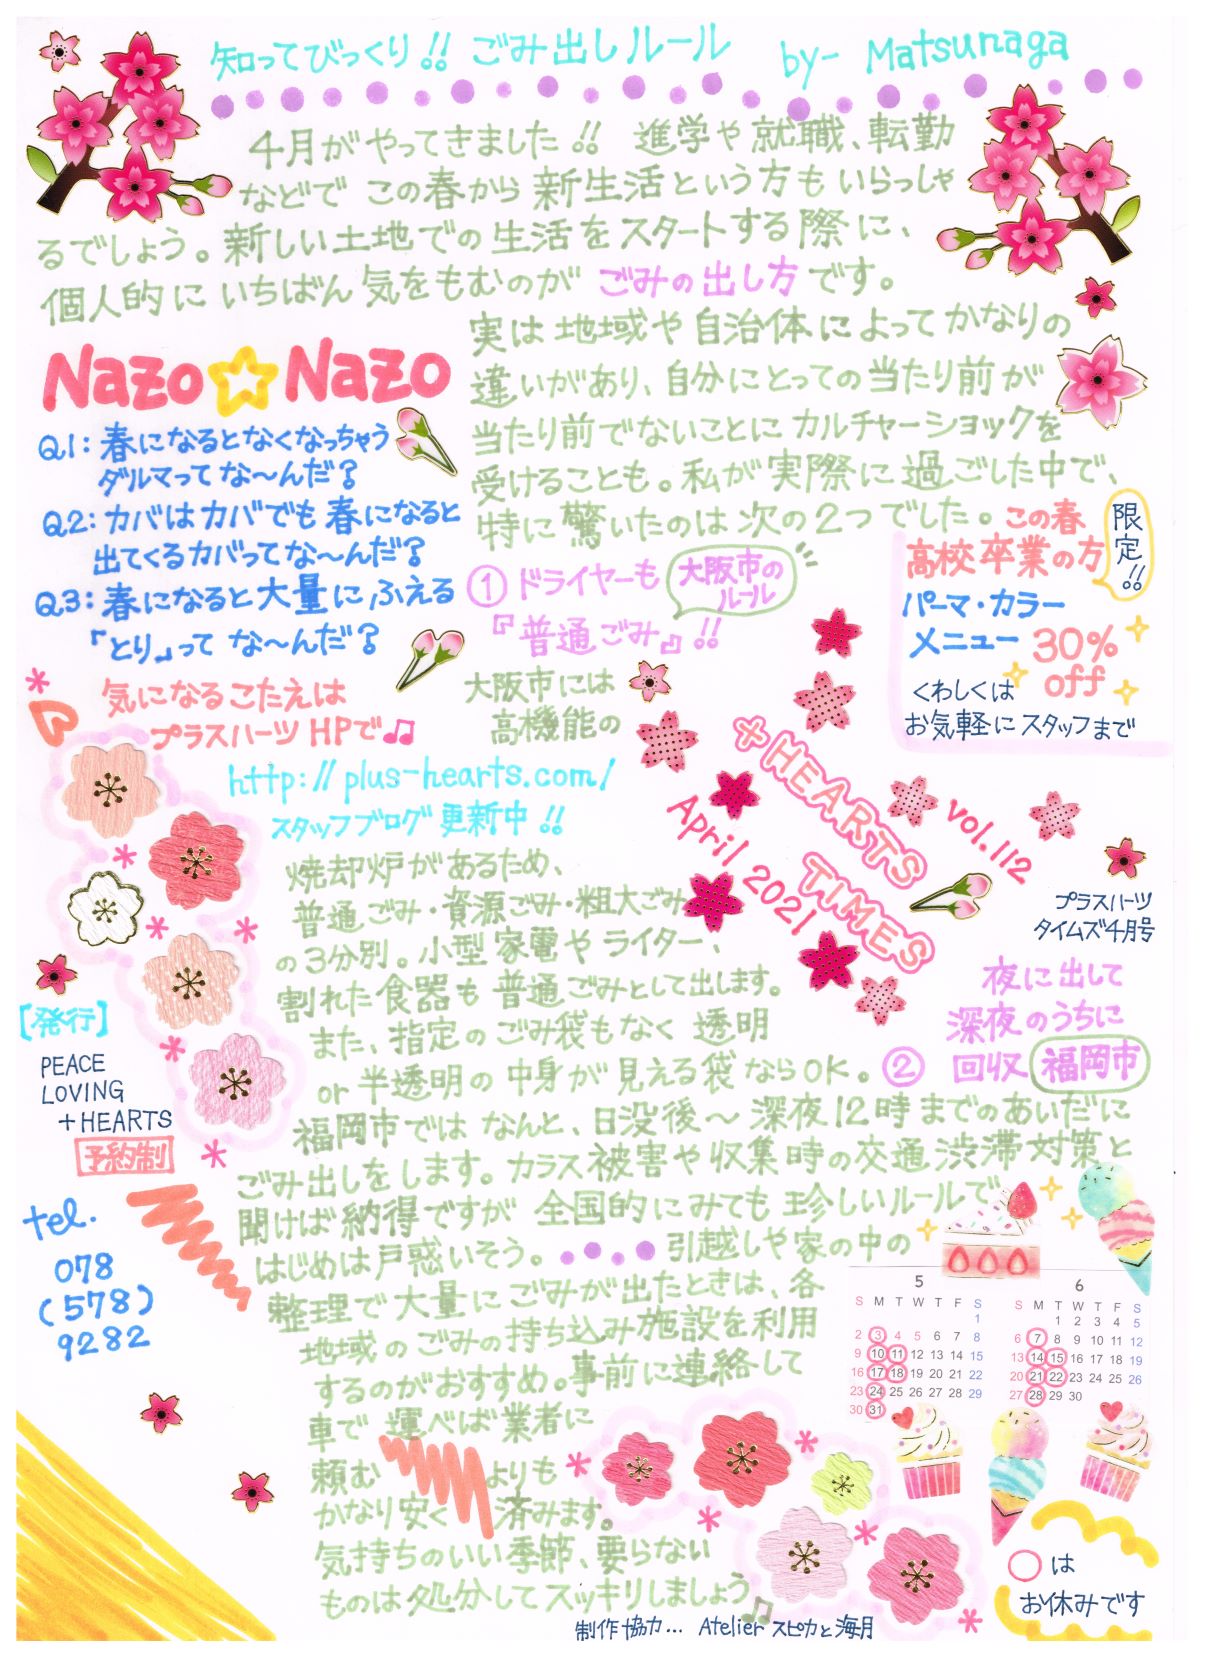 知ってびっくり!! ごみ出しルール by- Matsunaga
4月がやってきました!! 進学や就職、転勤
などで この春から新生活という方もいらっしゃ
るでしょう。新しい土地での生活をスタートする際に、
個人的にいちばん気をもむのが ごみの出し方です。
実は地域や自治体によってかなりの
違いがあり、自分にとっての当たり前が
当たり前でないことにカルチャーショックを
受けることも。私が実際に過ごした中で、
特に驚いたのは次の2つでした。
Nazo☆Nazo
Q1:春になるとなくなっちゃう
ダルマってな〜んだ?
Q2:カバはカバでも春になると
出てくるカバってな〜んだ?
Q3:春になると大量にふえる
「とり」って な〜んだ?
気になるこたえは
プラスハーツHPで♫
http://plus-hearts.com/
スタッフブログ更新中!!
この春
高校卒業の方
限定!!
パーマ・カラー
メニュー 30%
off
くわしくは
お気軽にスタッフまで
① ドライヤーも
『普通ごみ』!!
大阪市の
ルール
大阪市には
高機能の
焼却炉があるため、
普通ごみ・資源ごみ・粗大ごみ
の3分別。小型家電やライター、
割れた食器も普通ごみとして出します。
また、指定のごみ袋もなく 透明
or 半透明の中身が見える袋ならOK。
+HEARTS
TIMES
vol.112
April 2021
プラスハーツ
タイムズ4月号
夜に出して
深夜のうちに
② 回収 福岡市
福岡市ではなんと、日没後〜深夜12時までのあいだに
ごみ出しをします。カラス被害や収集時の交通渋滞対策と
聞けば納得ですが 全国的にみても珍しいルールで
はじめは戸惑いそう。 引越しや家の中の
整理で大量にごみが出たときは、各
地域のごみの持ち込み施設を利用
するのがおすすめ。事前に連絡して
車で運べば業者に
頼む よりも
かなり安く 済みます。
気持ちのいい季節、要らない
ものは処分してスッキリしましょう♫
[発行]
PEACE
LOVING
+HEARTS
予約制
tel.
078
(578)
9282
5
S M T W T F S
1
2 3 4 5 6 7 8
9 10 11 12 13 14 15
16 17 18 19 20 21 22
23 24 25 26 27 28 29
30 31
6
S M T W T F S
1 2 3 4 5
6 7 8 9 10 11 12
13 14 15 16 17 18 19
20 21 22 23 24 25 26
27 28 29 30
○は
お休みです
制作協力… Atelier スピカと海月